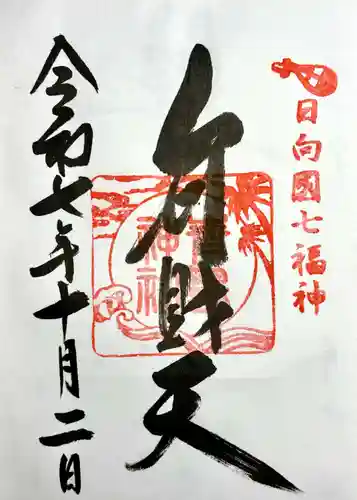 日向國七福神
弁財天
青島神社
令和七年十月二日